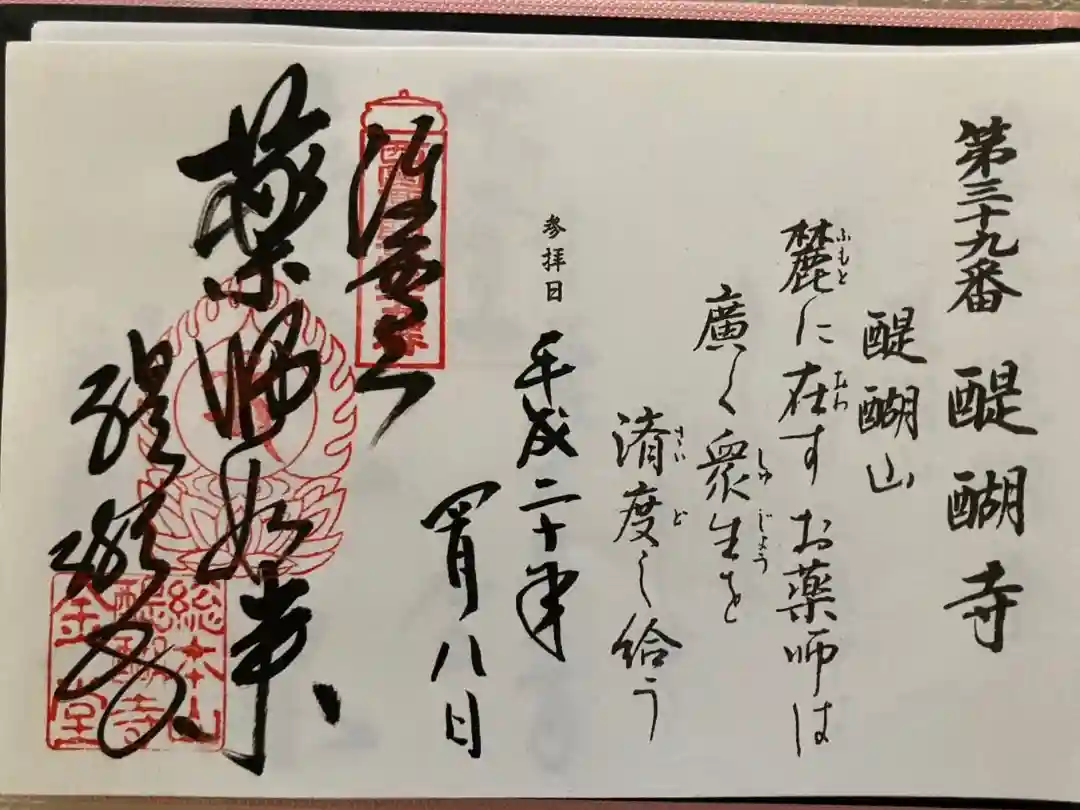 第三十九番 醍醐寺
醍醐山
麓に在す お薬師は
ふもと おわ
廣く衆生を
しゅじょう
済度し給う
さいど
参拝日 平成二十年
四月八日
薬師如来
醍醐寺
総本山
醍醐寺
金堂